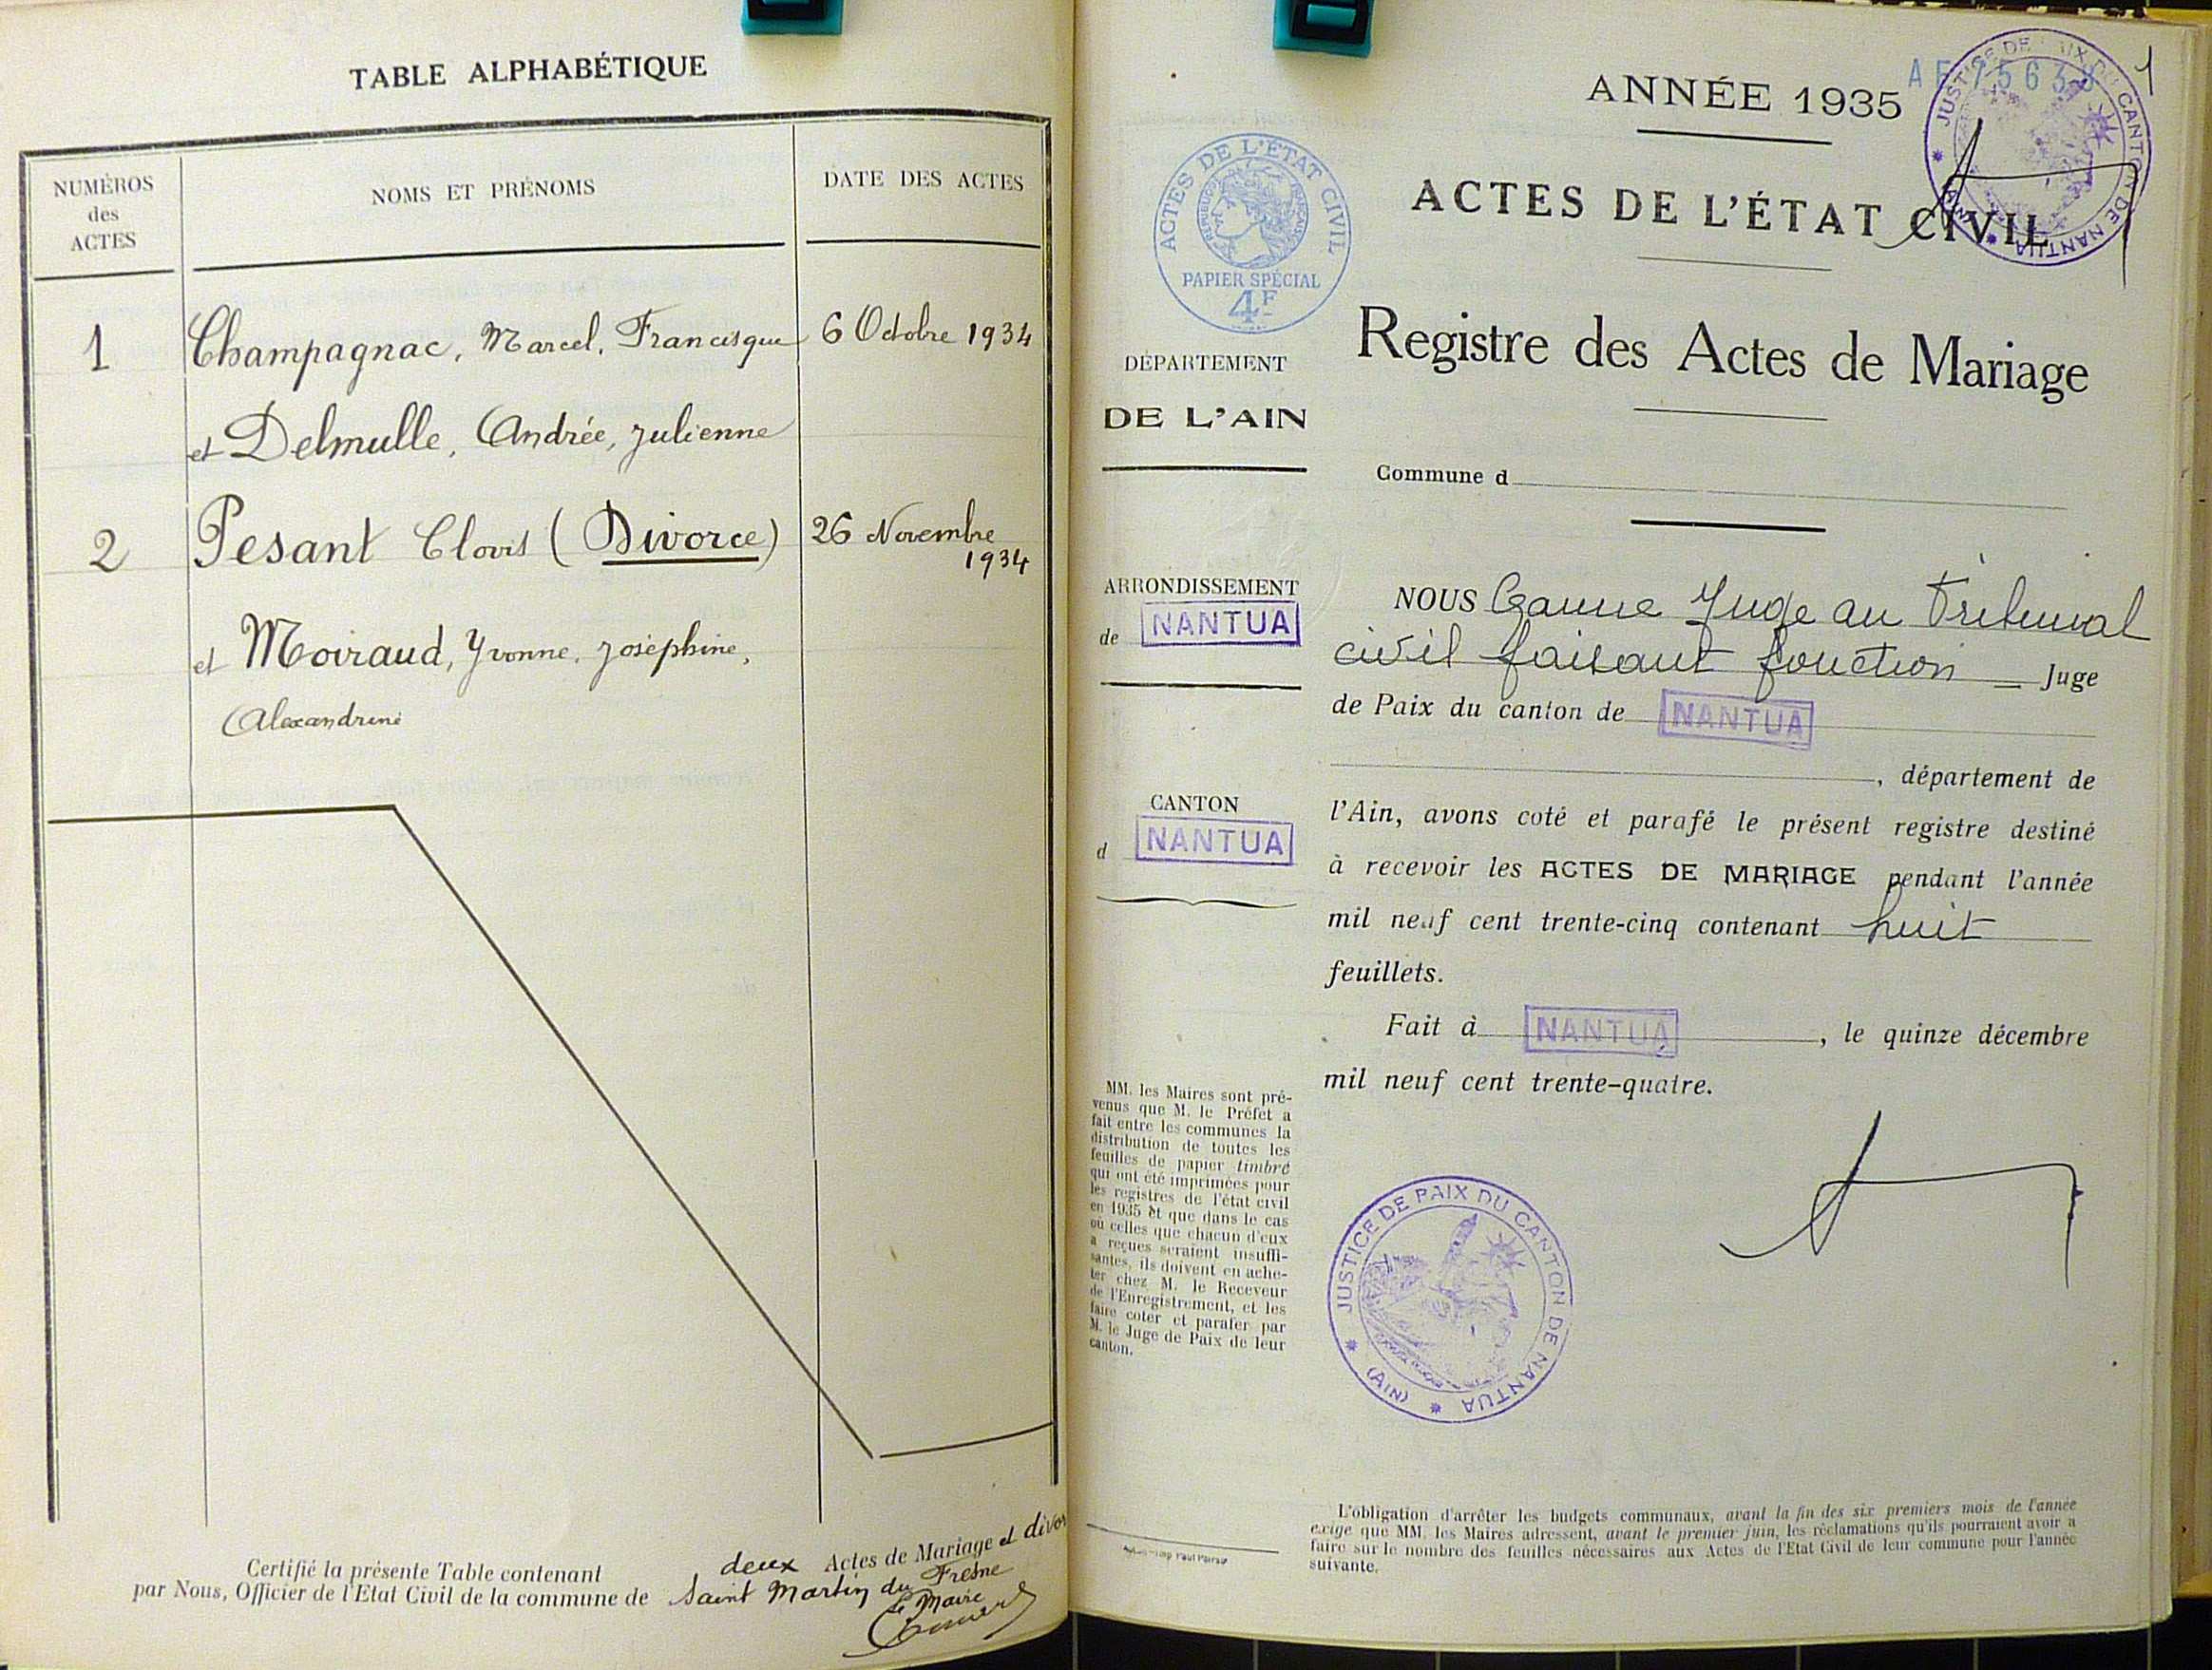 TABLE ALPHABÉTIQUE
NUMÉROS
des
ACTES
NOMS ET PRÉNOMS
DATE DES ACTES
1 Champagnac, Marcel, Francisque 6 Octobre 1934
et Delmulle, Andrée, Julienne
2 Pesant Clovis (Divorce) 26 Novembre
1934
et Moiraud, Yvonne, Joséphine,
Alexandrine
Certifié la présente Table contenant deux Actes de Mariage et divor
par Nous, Officier de l'Etat Civil de la commune de Saint Martin du Fresne
Le Maire
1
ANNÉE 1935
JUSTICE DE PAIX DU CANTON DE NANTUA
ACTES DE L'ÉTAT CIVIL
RÉPUBLIQUE FRANÇAISE
PAPIER SPÉCIAL
4F
ACTES DE L'ÉTAT CIVIL
Registre des Actes de Mariage
DÉPARTEMENT
DE L'AIN
Commune d
ARRONDISSEMENT
de NANTUA
CANTON
d NANTUA
NOUS Juge au Tribunal
civil faisant fonction Juge
de Paix du canton de NANTUA
, département de
l'Ain, avons coté et parafé le présent registre destiné
à recevoir les ACTES DE MARIAGE pendant l'année
mil neuf cent trente-cinq contenant huit
feuillets.
Fait à NANTUA, le quinze décembre
mil neuf cent trente-quatre.
MM. les Maires sont pré-
venus que M. le Préfet a
fait entre les communes la
distribution de toutes les
feuilles de papier timbré
qui ont été imprimées pour
les registres de l'état civil
en 1935 et que dans le cas
où celles que chacun d'eux
a reçues seraient insuffi-
santes, ils doivent en ache-
ter chez M. le Receveur
de l'Enregistrement, et les
faire coter et parafer par
M. le Juge de Paix de leur
canton.
JUSTICE DE PAIX DU CANTON DE NANTUA
(AIN)
L'obligation d'arrêter les budgets communaux, avant la fin des six premiers mois de l'année
exige que MM. les Maires adressent, avant le premier juin, les réclamations qu'ils pourraient avoir à
faire sur le nombre des feuilles nécessaires aux Actes de l'Etat Civil de leur commune pour l'année
suivante.